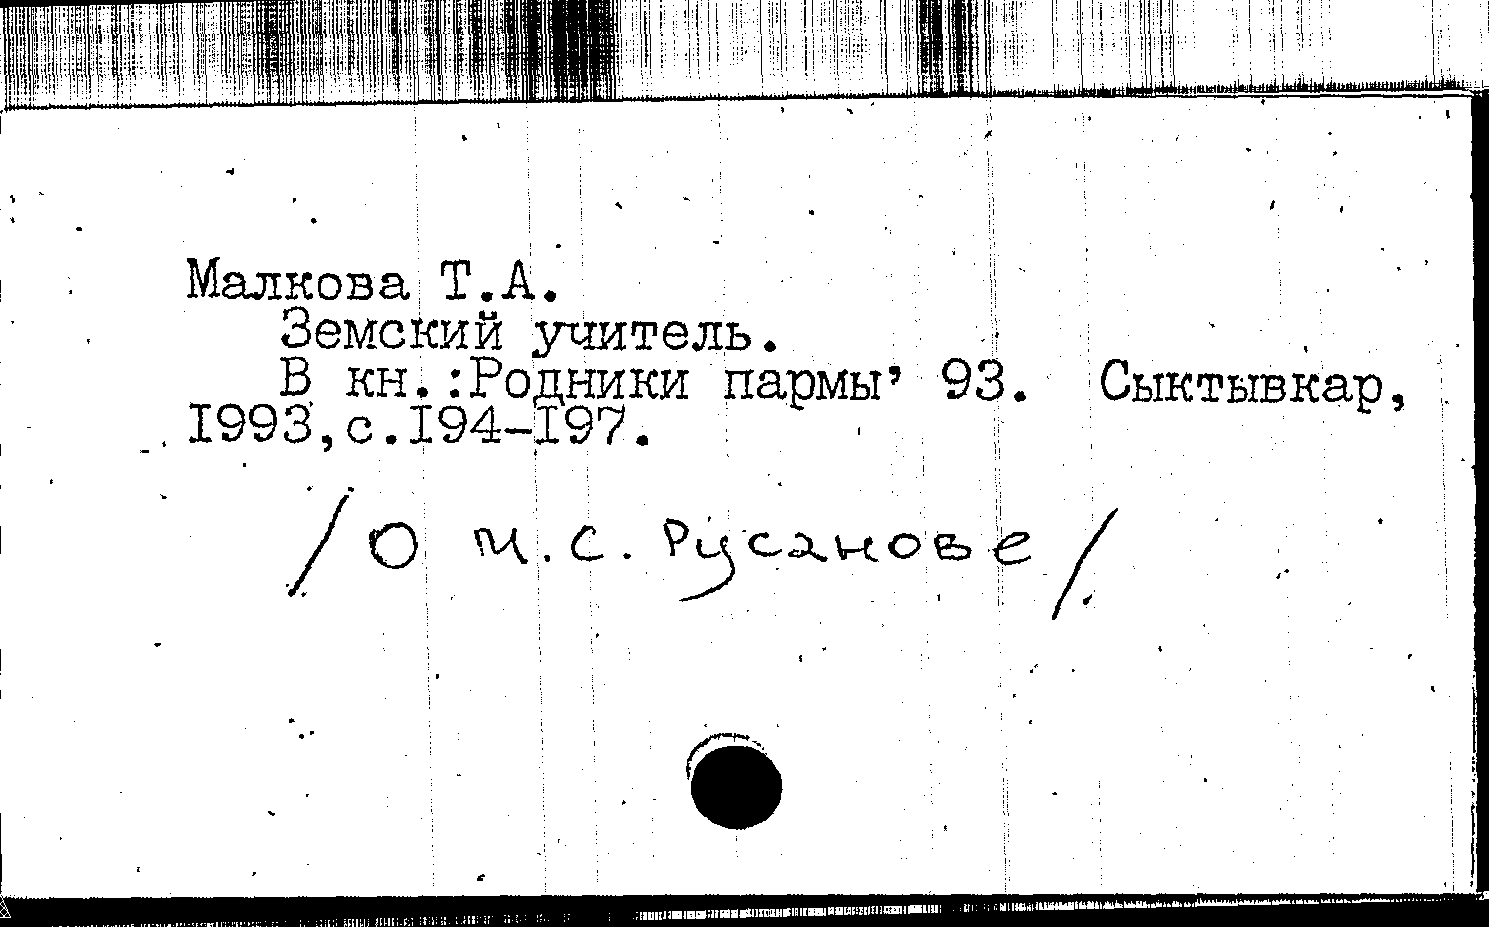 Малкова Т.А.
Земский учитель.
В кн.:Родники пармы’ 93. Сыктывкар,
I993,с.I94-I97.
/О И.С. Русанове/